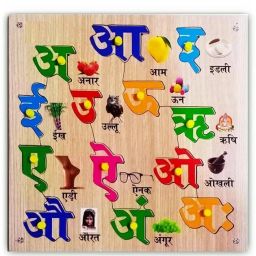 अ अनार आ आम इ इडली
ई ईख उ उल्लू ऊ ऊन ऋ ऋषि
ए एड़ी ऐ ऐनक ओ ओखली
औ औरत अं अंगूर अः